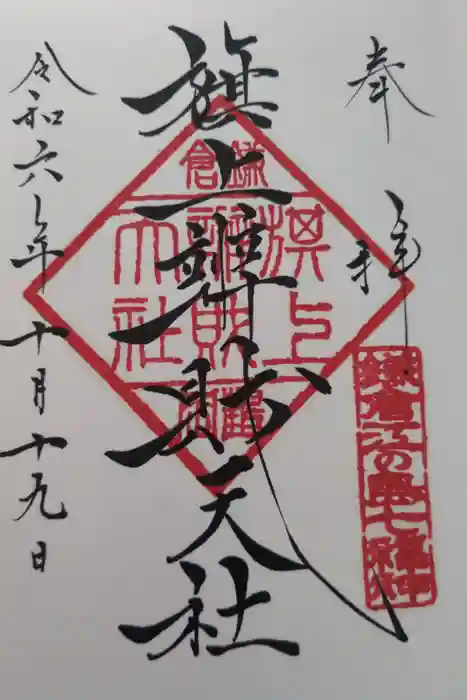 奉拝
旗上辨財天社
令和六年十月十九日
鎌倉
旗上
辨財
天社
鎌倉江の島七福神